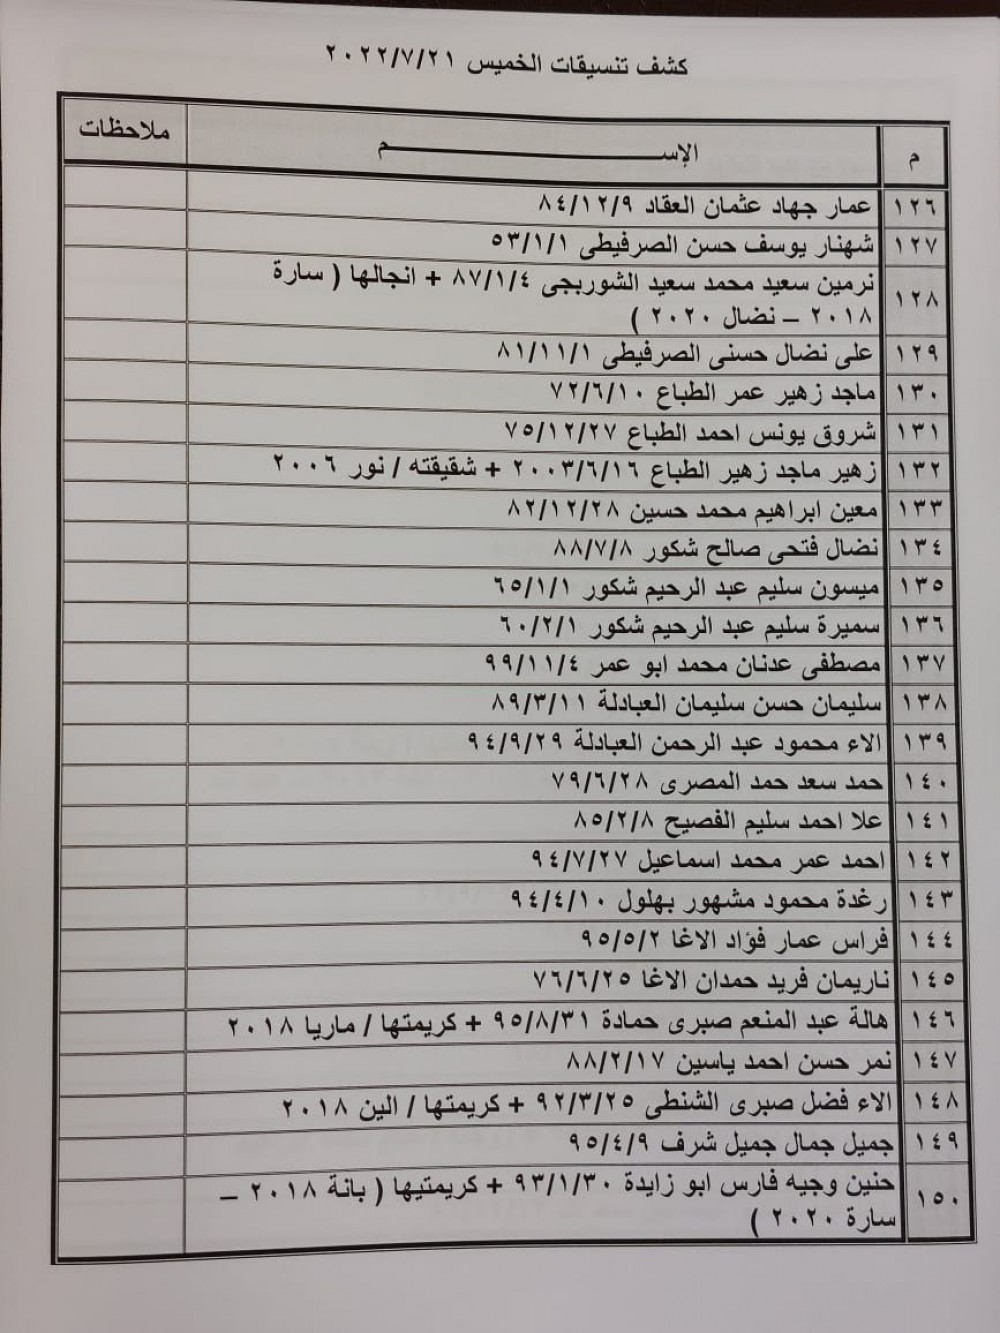 كشف تنسيقات الخميس ٢٠٢٢/٧/٢١
م الإســـــــــــــم ملاحظات
١٢٦ عمار جهاد عثمان العقاد ٨٤/١٢/٩
١٢٧ شهنار يوسف حسن الصرفيطى ٥٣/١/١
١٢٨ نرمين سعيد محمد سعيد الشوربجى ٨٧/١/٤ + انجالها ( سارة
٢٠١٨ – نضال ٢٠٢٠ )
١٢٩ على نضال حسنى الصرفيطى ٨١/١١/١
١٣٠ ماجد زهير عمر الطباع ٧٢/٦/١٠
١٣١ شروق يونس احمد الطباع ٧٥/١٢/٢٧
١٣٢ زهير ماجد زهير الطباع ٢٠٠٣/٦/١٦ + شقيقته / نور ٢٠٠٦
١٣٣ معين ابراهيم محمد حسين ٨٢/١٢/٢٨
١٣٤ نضال فتحى صالح شكور ٨٨/٧/٨
١٣٥ ميسون سليم عبد الرحيم شكور ٦٥/١/١
١٣٦ سميرة سليم عبد الرحيم شكور ٦٠/٢/١
١٣٧ مصطفى عدنان محمد ابو عمر ٩٩/١١/٤
١٣٨ سليمان حسن سليمان العبادلة ٨٩/٣/١١
١٣٩ الاء محمود عبد الرحمن العبادلة ٩٤/٩/٢٩
١٤٠ حمد سعد حمد المصرى ٧٩/٦/٢٨
١٤١ علا احمد سليم الفصيح ٨٥/٢/٨
١٤٢ احمد عمر محمد اسماعيل ٩٤/٧/٢٧
١٤٣ رغدة محمود مشهور بهلول ٩٤/٤/١٠
١٤٤ فراس عمار فؤاد الاغا ٩٥/٥/٢
١٤٥ ناريمان فريد حمدان الاغا ٧٦/٦/٢٥
١٤٦ هالة عبد المنعم صبرى حمادة ٩٥/٨/٣١ + كريمتها / ماريا ٢٠١٨
١٤٧ نمر حسن احمد ياسين ٨٨/٢/١٧
١٤٨ الاء فضل صبرى الشنطى ٩٢/٣/٢٥ + كريمتها / الين ٢٠١٨
١٤٩ جميل جمال جميل شرف ٩٥/٤/٩
١٥٠ حنين وجيه فارس ابو زايدة ٩٣/١/٣٠ + كريمتيها ( بانة ٢٠١٨ –
سارة ٢٠٢٠ )